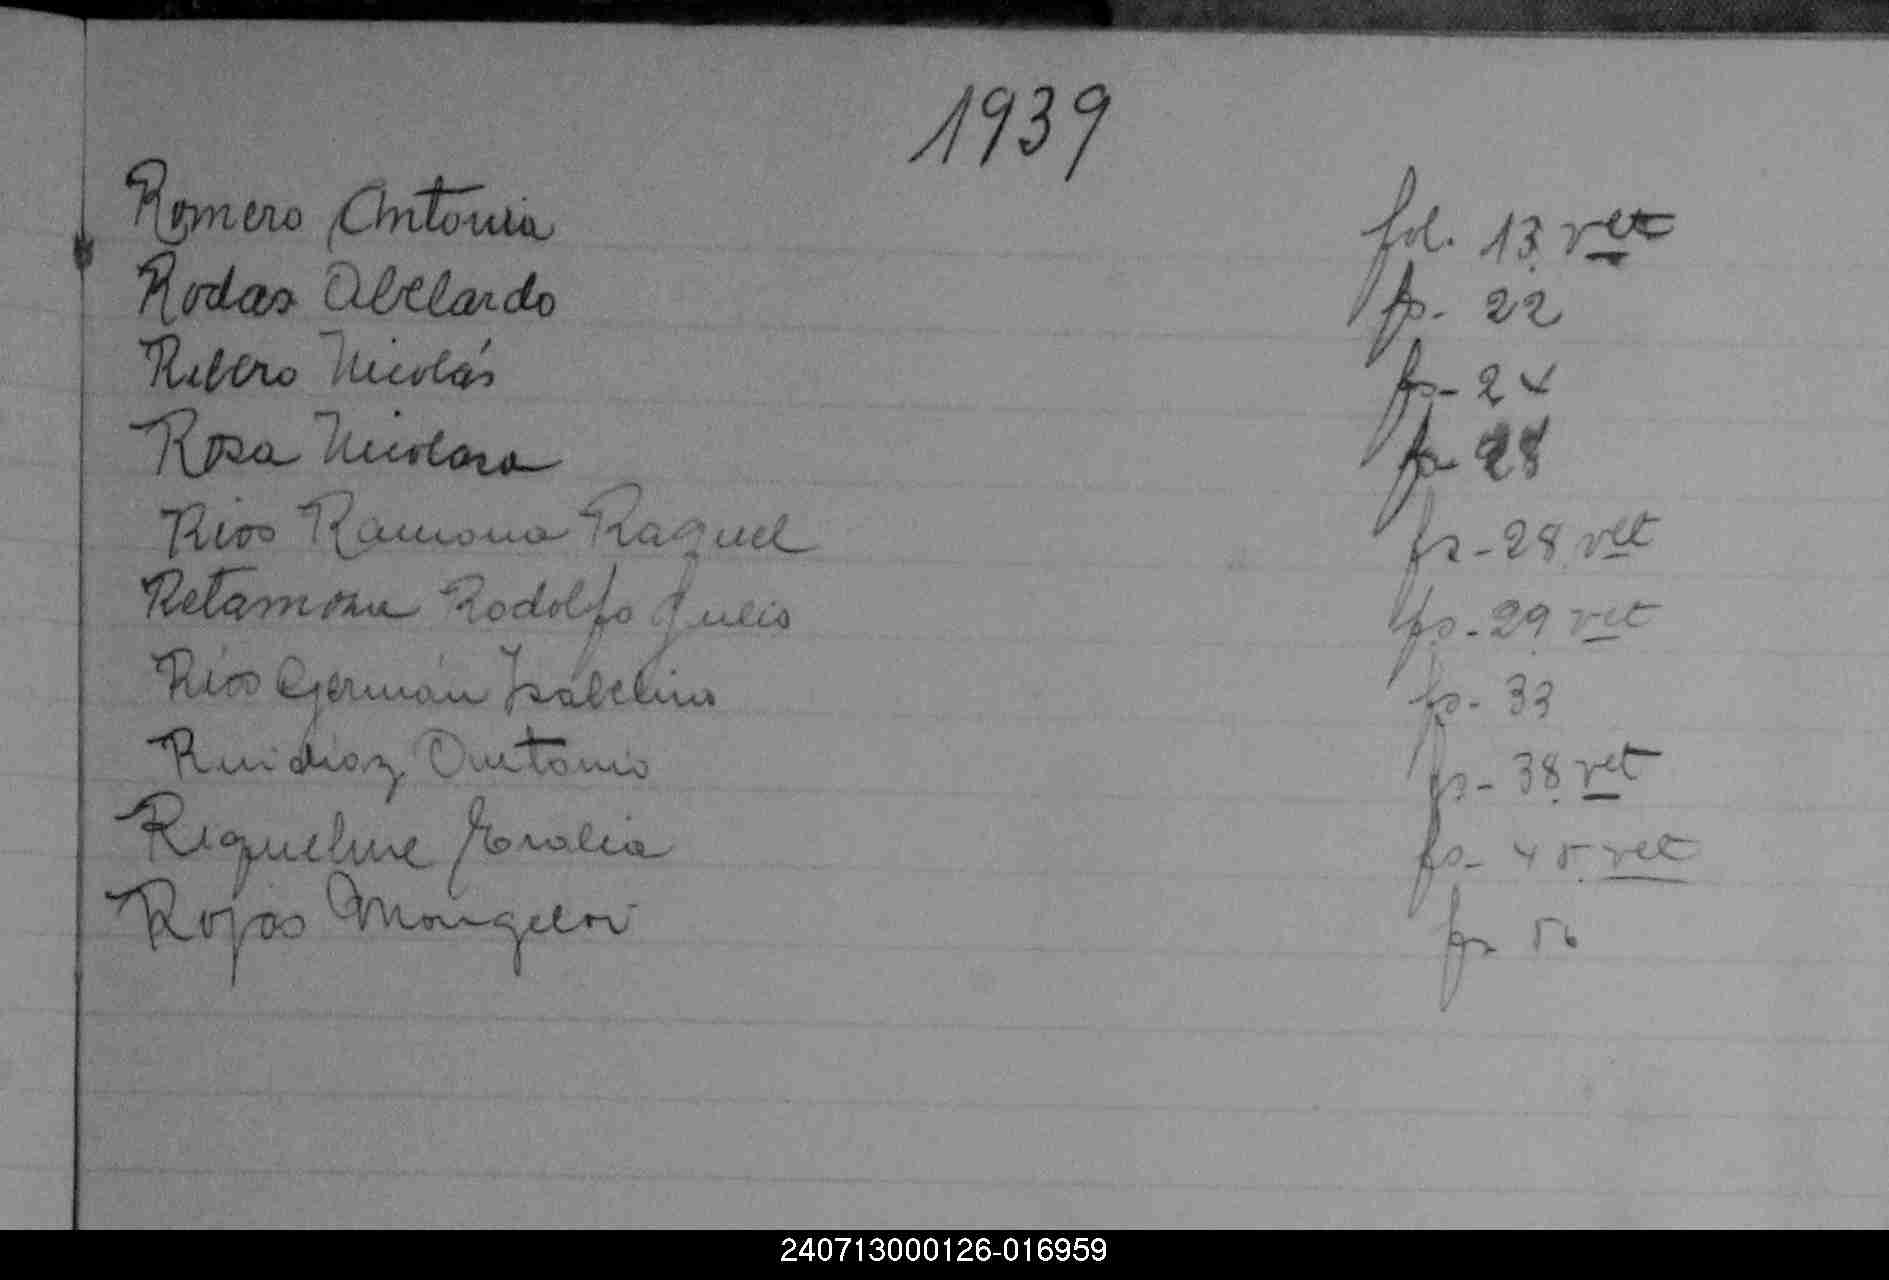 1939
Romero Antonia fol. 13 vlt
Rodas Abelardo fs. 22
Ribero Nicolás fs - 24
Rosa Nicolasa fs 28
Rios Ramona Raquel fs - 28 vlt
Retamozu Rodolfo Julio fs - 29 vlt
Ríos Germán Isabelino fs - 33
Ruidiaz Antonio fs - 38 vlt
Riquelme fs - 45 vlt
Rojas Mongelos fs 50
240713000126-016959